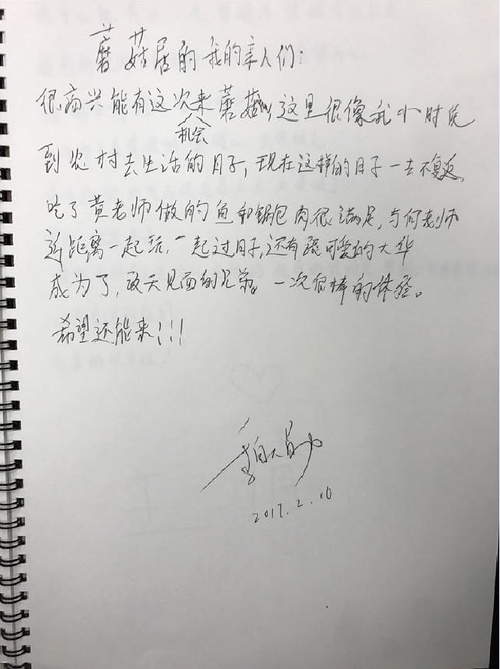 蘑菇屋的我的亲人们:
很高兴能有这次来蘑菇 这里很像我小时候
机会
到农村去生活的日子,现在这样的日子一去不复返,
吃了黄老师做的鱼和锅包肉很满足,与何老师
近距离一起玩,一起过日子,还有跟可爱的大华
成为了,敢天见面的兄弟。一次很棒的体验。
希望还能来!!!
2017.2.10